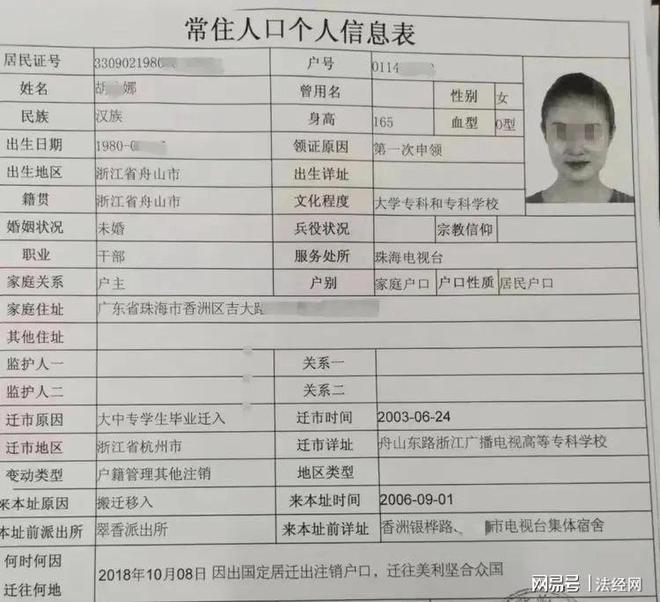 常住人口个人信息表
居民证号 3309021980 户号 0114
姓名 胡 娜 曾用名 性别 女
民族 汉族 身高 165 血型 O型
出生日期 1980-0 领证原因 第一次申领
出生地区 浙江省舟山市 出生详址
籍贯 浙江省舟山市 文化程度 大学专科和专科学校
婚姻状况 未婚 兵役状况 宗教信仰
职业 干部 服务处所 珠海电视台
家庭关系 户主 户别 家庭户口 户口性质 居民户口
家庭住址 广东省珠海市香洲区吉大路
其他住址
监护人一 关系一
监护人二 关系二
迁市原因 大中专学生毕业迁入 迁市时间 2003-06-24
迁市地区 浙江省杭州市 迁市详址 舟山东路浙江广播电视高等专科学校
变动类型 户籍管理其他注销 地区类型
来本址原因 搬迁移入 来本址时间 2006-09-01
本址前派出所 翠香派出所 来本址前详址 香洲银桦路、 市电视台集体宿舍
何时何因
迁往何地 2018年10月08日 因出国定居迁出注销户口，迁往美利坚合众国
网易号 | 法经网